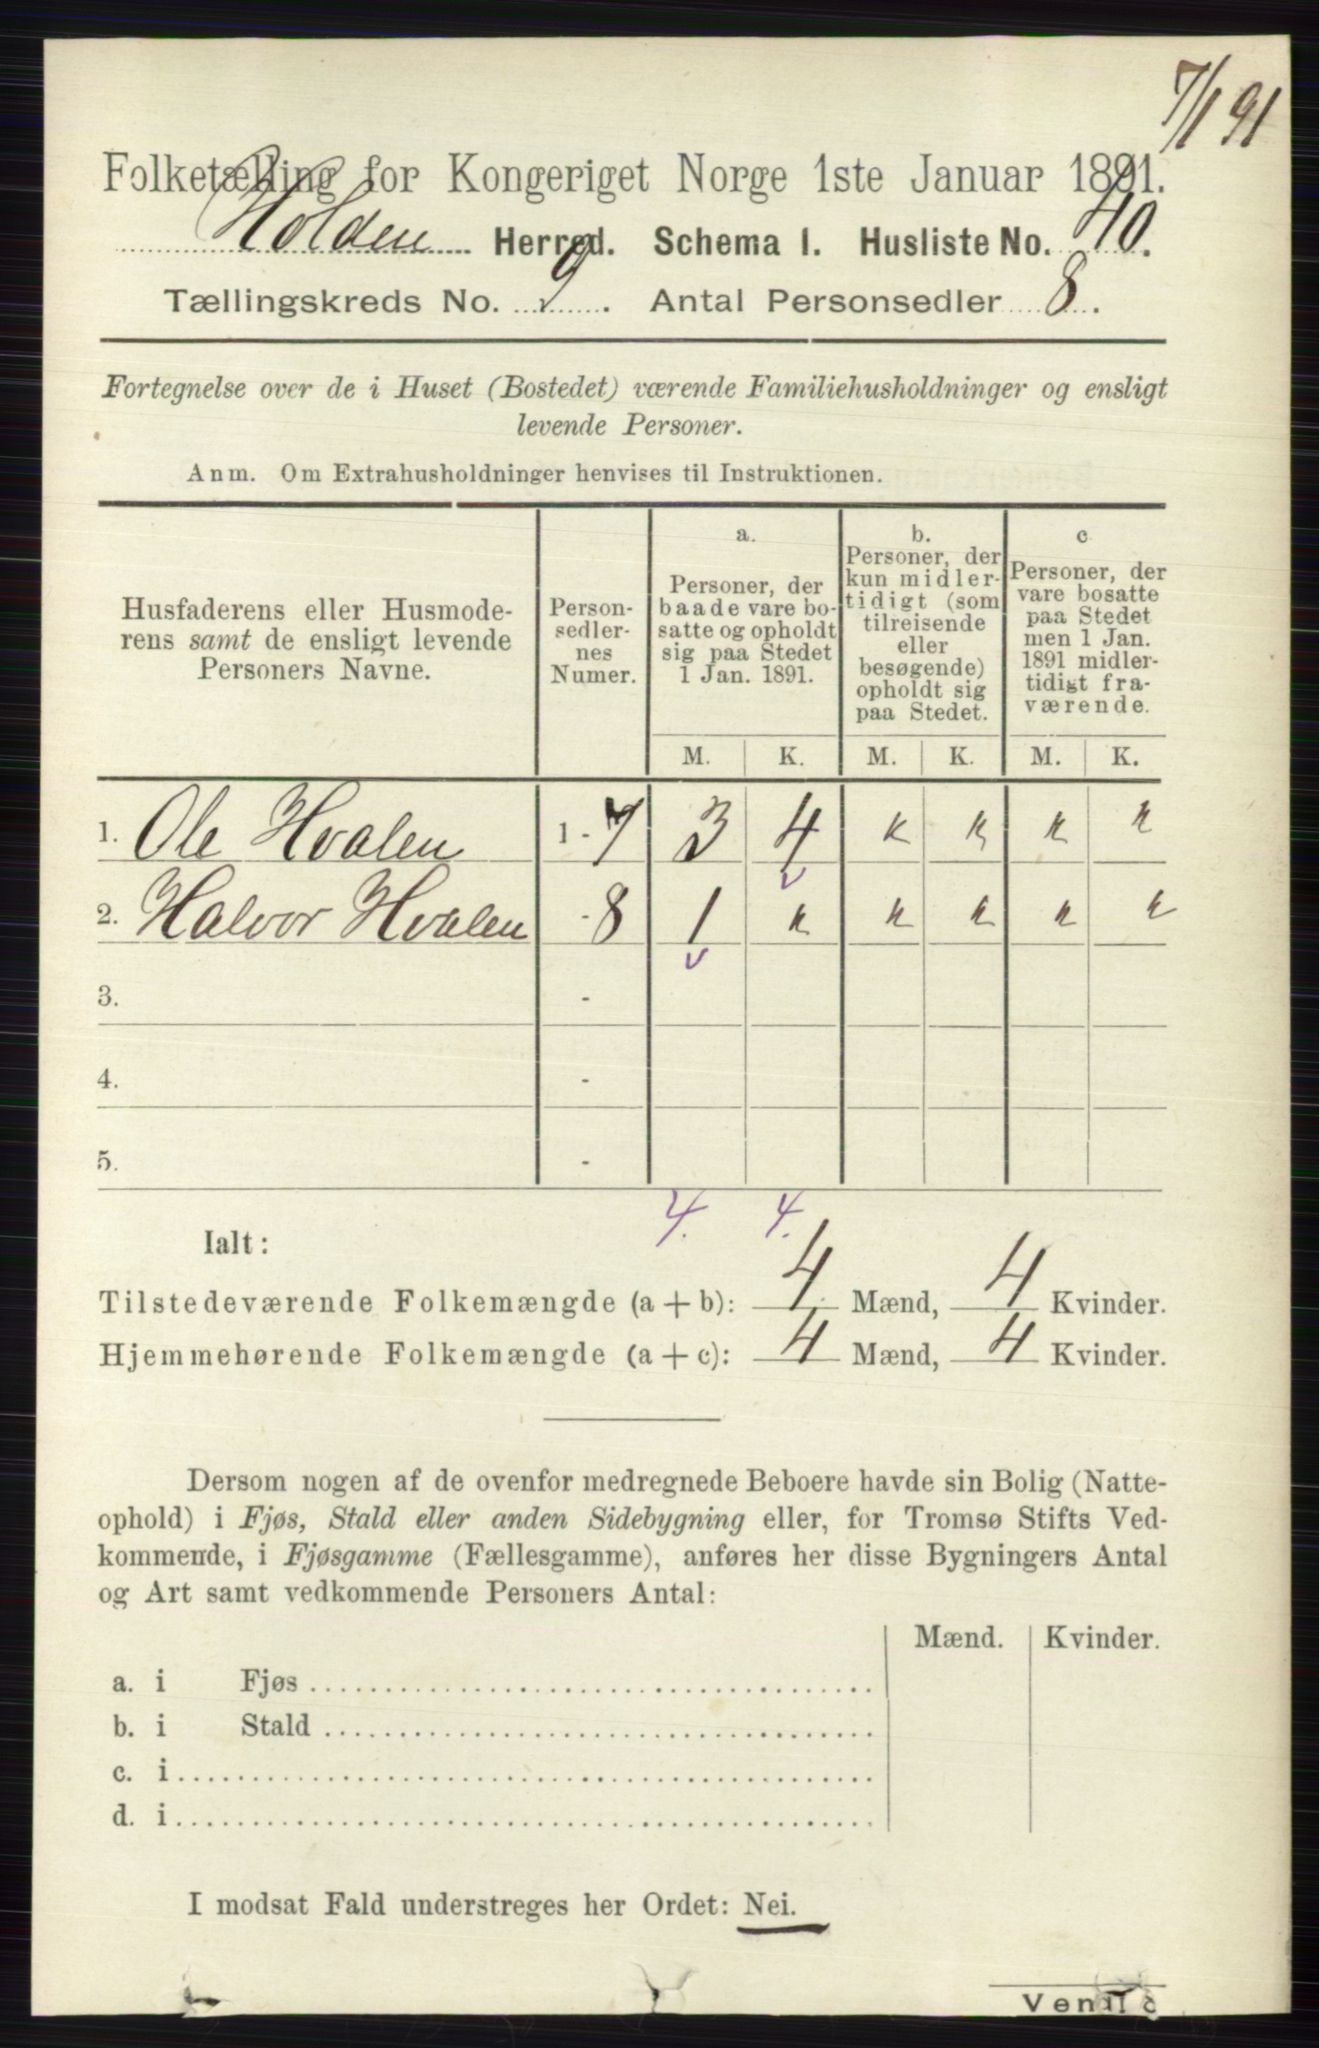 7/1 91
Folketælling for Kongeriget Norge 1ste Januar 1891.
Holden Herred. Schema I. Husliste No. 40.
Tællingskreds No. 9. Antal Personsedler 8.
Fortegnelse over de i Huset (Bostedet) værende Familiehusholdninger og ensligt
levende Personer.
Anm. Om Extrahusholdninger henvises til Instruktionen.
Husfaderens eller Husmode-
rens samt de ensligt levende
Personers Navne.
Person-
sedler-
nes
Numer.
a.
Personer, der
baade vare bo-
satte og opholdt
sig paa Stedet
1 Jan. 1891.
b.
Personer, der
kun midler-
tidigt (som
tilreisende
eller
besøgende)
opholdt sig
paa Stedet.
c
Personer, der
vare bosatte
paa Stedet
men 1 Jan.
1891 midler-
tidigt fra-
værende.
M. K. M. K. M. K.
1. Ole Hvalen 1 - 7 3 4 " " " "
2. Halvor Hvalen - 8 1 " " " " "
3. -
4. -
5. -
4. 4.
Ialt:
Tilstedeværende Folkemængde (a + b): 4 Mænd, 4 Kvinder.
Hjemmehørende Folkemængde (a + c): 4 Mænd, 4 Kvinder.
Dersom nogen af de ovenfor medregnede Beboere havde sin Bolig (Natte-
ophold) i Fjøs, Stald eller anden Sidebygning eller, for Tromsø Stifts Ved-
kommende, i Fjøsgamme (Fællesgamme), anføres her disse Bygningers Antal
og Art samt vedkommende Personers Antal:
Mænd. Kvinder.
a. i Fjøs
b. i Stald
c. i
d. i
I modsat Fald understreges her Ordet: Nei.